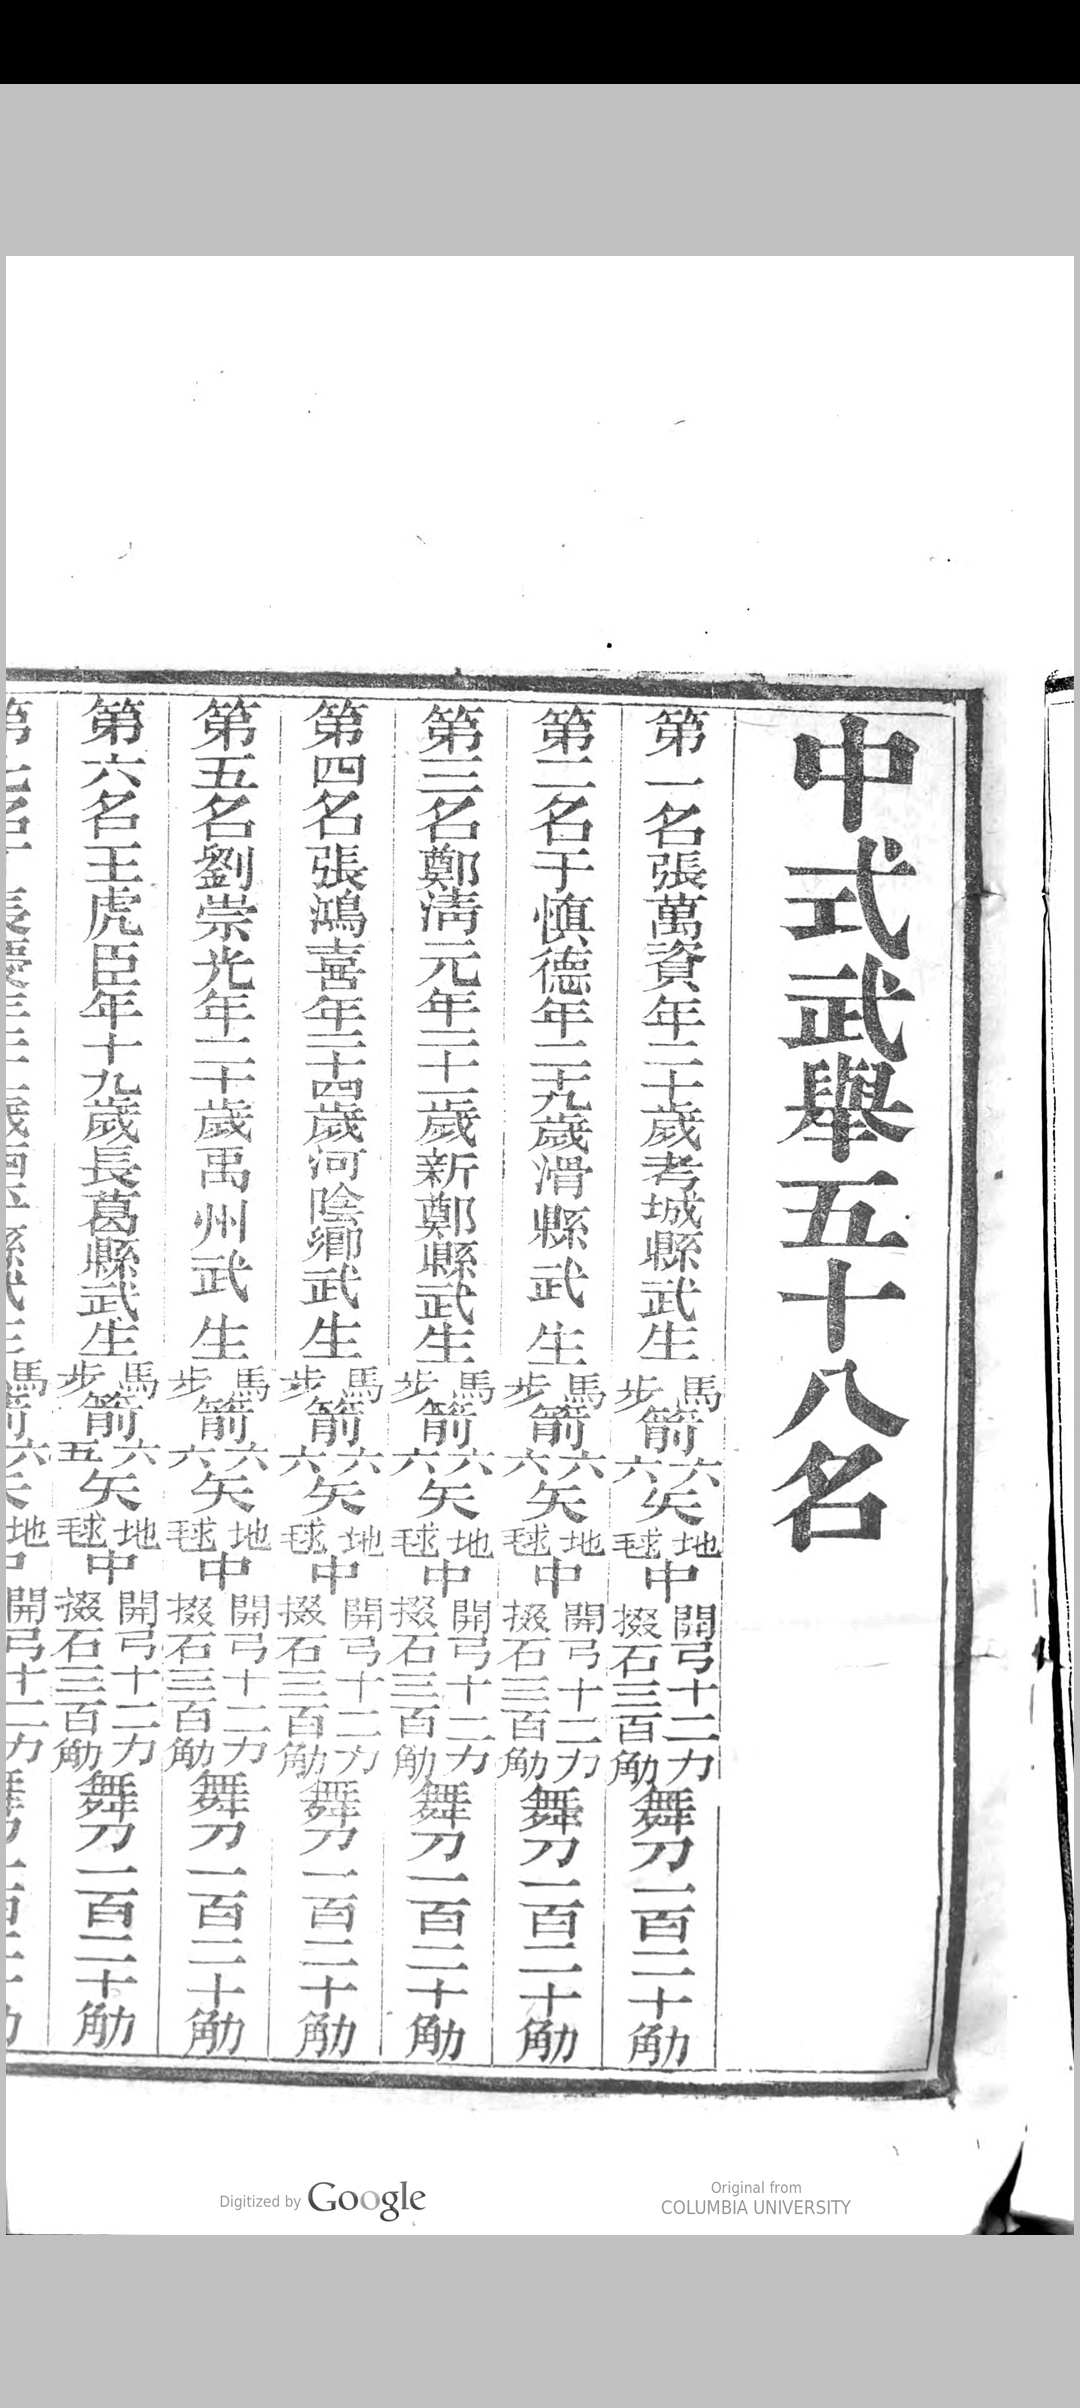 中式武舉五十八名
第一名張萬資年二十歲考城縣武生馬步箭六六矢地毬中開弓十二力掇石三百觔舞刀一百二十觔
第二名于慎德年二十九歲滑縣武生馬步箭六六矢地毬中開弓十二力掇石三百觔舞刀一百二十觔
第三名鄭清元年二十一歲新鄭縣武生馬步箭六六矢地毬中開弓十二力掇石三百觔舞刀一百二十觔
第四名張鴻喜年二十四歲河陰鄉武生馬步箭六六矢地毬中開弓十二力掇石三百觔舞刀一百二十觔
第五名劉崇光年二十歲禹州武生馬步箭六六矢地毬中開弓十二力掇石三百觔舞刀一百二十觔
第六名王虎臣年十九歲長葛縣武生馬步箭六五矢地毬中開弓十二力掇石三百觔舞刀一百二十觔
Digitized by Google
Original from
COLUMBIA UNIVERSITY